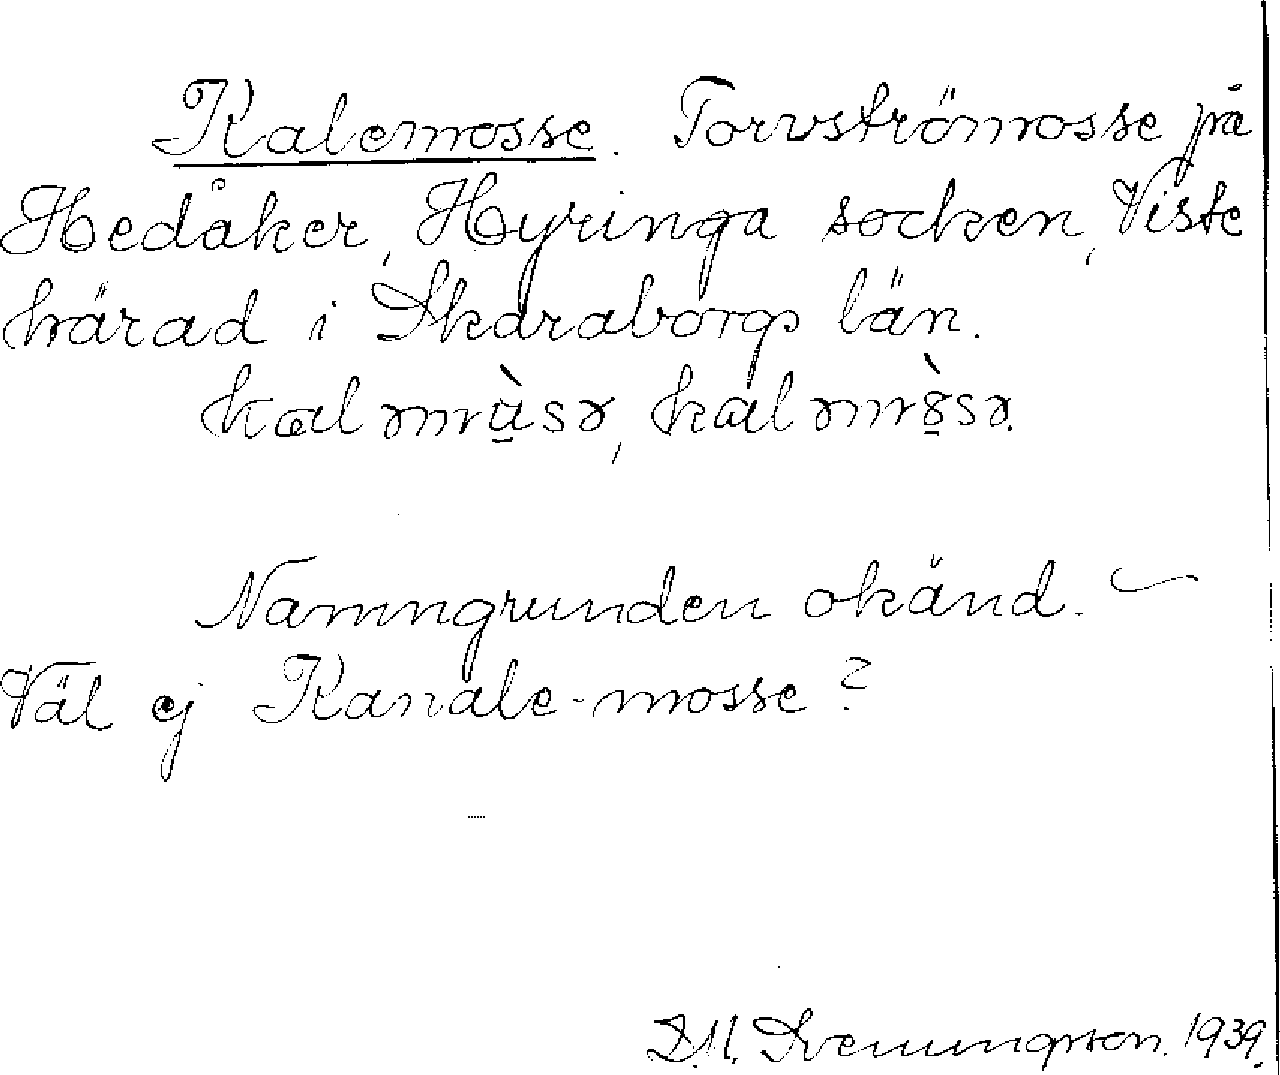 Kalemosse. Torvströmosse på
Hedåker, Hyringa socken, Viste
härad i Skaraborgs län.
Namngrunden okänd. –
Väl ej Kanale-mosse?
D.M. Svenungsson. 1939.